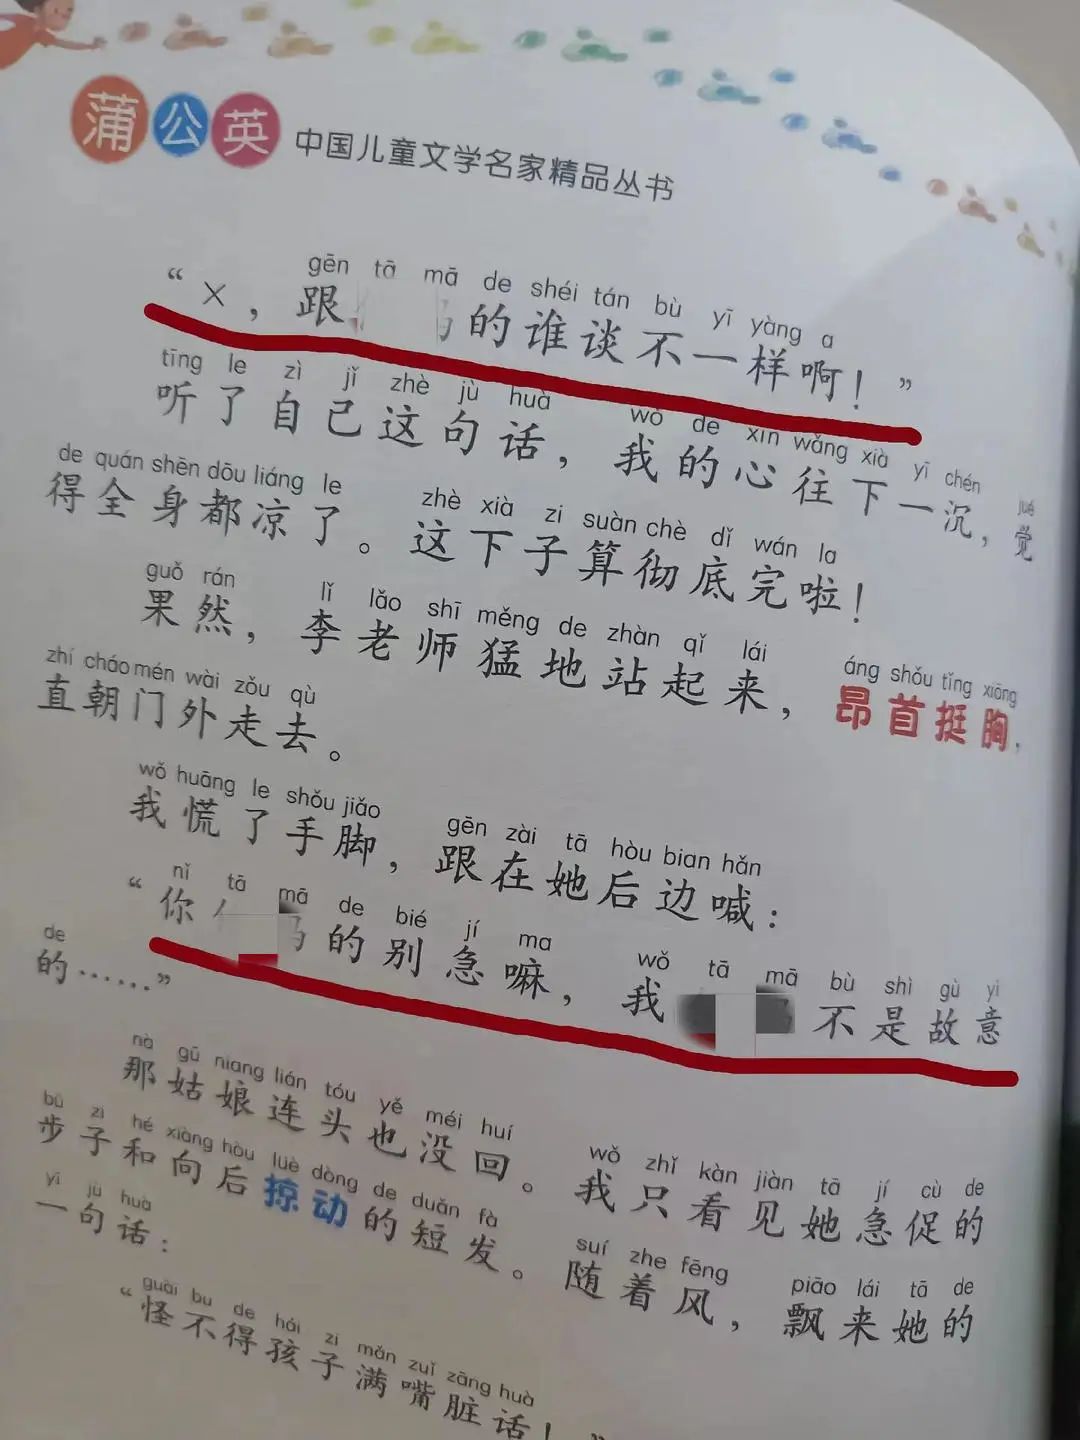 蒲公英 中国儿童文学名家精品丛书
gēn tā mā de shéi tán bù yī yàng a
“×，跟 的谁谈不一样啊！”
tīng le zì jǐ zhè jù huà wǒ de xīn wǎng xià yī chén jué
听了自己这句话，我的心往下一沉，觉
de quán shēn dōu liáng le zhè xià zi suàn chè dǐ wán la
得全身都凉了。这下子算彻底完啦！
guǒ rán lǐ lǎo shī měng de zhàn qǐ lái áng shǒu tǐng xiōng
果然，李老师猛地站起来，昂首挺胸，
zhí cháo mén wài zǒu qù
直朝门外走去。
wǒ huāng le shǒu jiǎo gēn zài tā hòu bian hǎn
我慌了手脚，跟在她后边喊：
nǐ tā mā de bié jí ma wǒ tā mā bù shì gù yì
“你 的别急嘛，我 不是故意
de
的……”
nà gū niang lián tóu yě méi huí wǒ zhǐ kàn jiàn tā jí cù de
那姑娘连头也没回。我只看见她急促的
bù zi hé xiàng hòu lüè dòng de duǎn fà suí zhe fēng piāo lái tā de
步子和向后掠动的短发。随着风，飘来她的
yī jù huà
一句话：
guài bu de hái zi mǎn zuǐ zāng huà
“怪不得孩子满嘴脏话！”